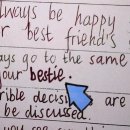 always be happy
r best friend's
ays go to the same
your bestie.
rible decisi are
be discussed.
you can